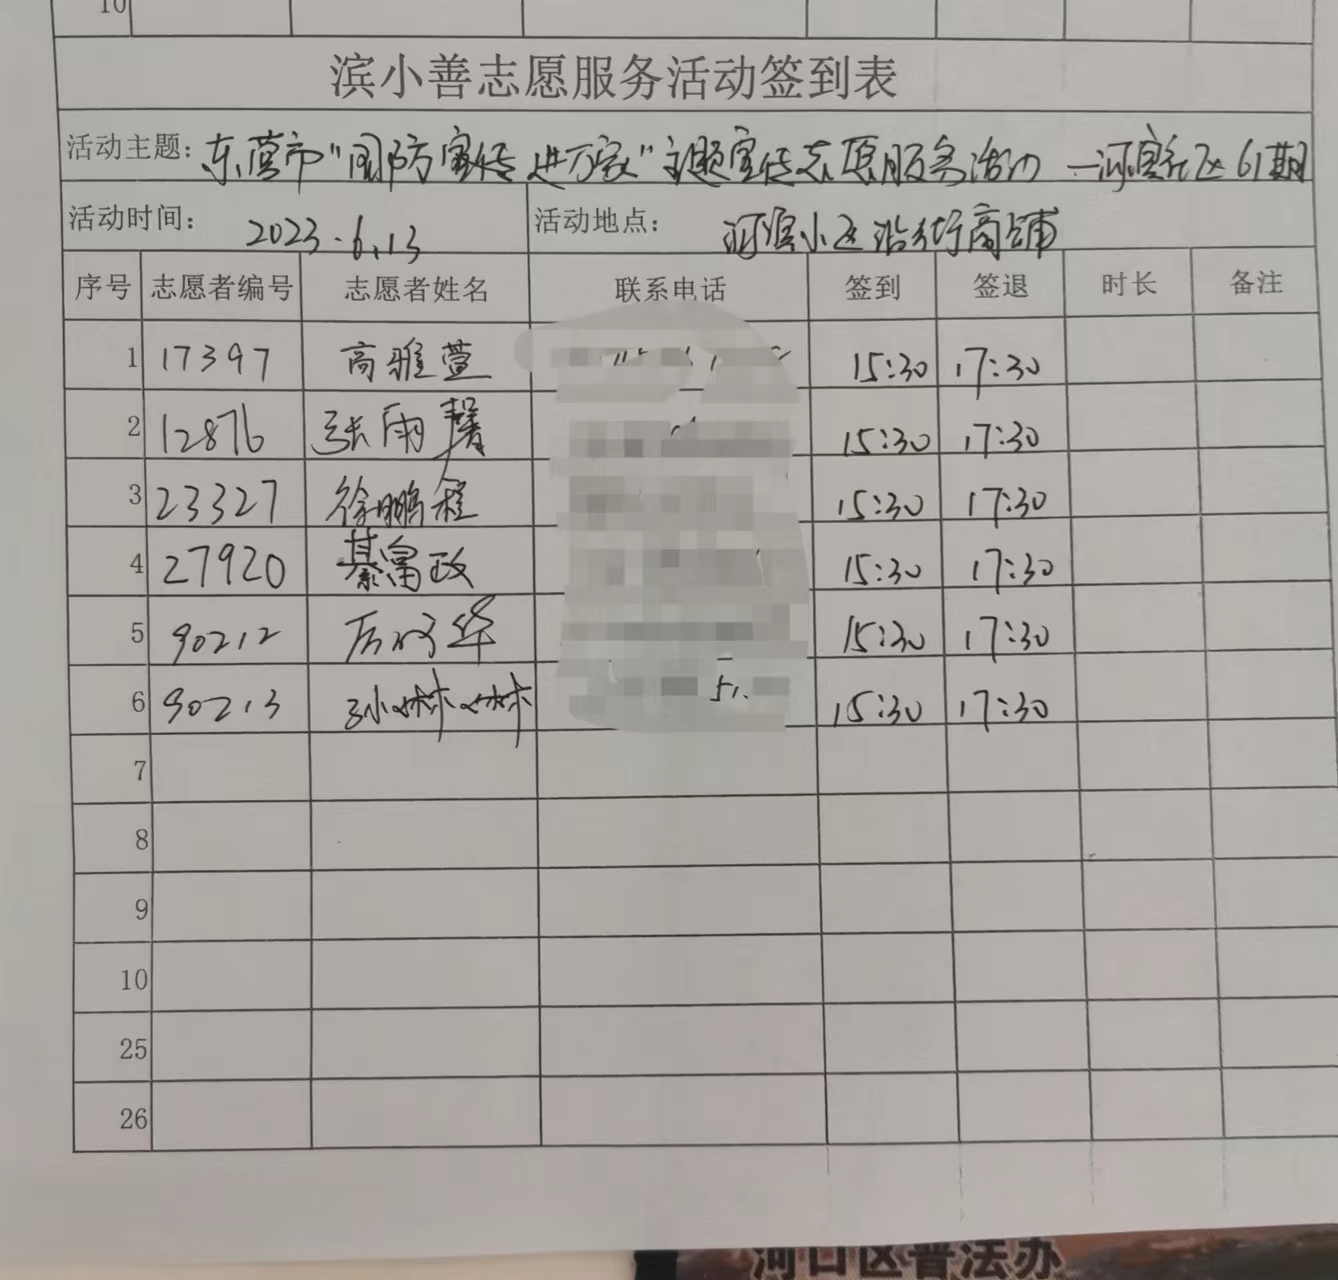 10
滨小善志愿服务活动签到表
活动主题: 东营市"国防宣传进万家"主题宣传志愿服务活动 —河滨社区61期
活动时间: 2023.6.13 活动地点: 河滨小区沿街商铺
序号 志愿者编号 志愿者姓名 联系电话 签到 签退 时长 备注
1 17397 高雅萱 15:30 17:30
2 12876 张雨馨 15:30 17:30
3 23327 徐鹏程 15:30 17:30
4 27920 綦富政 15:30 17:30
5 90212 15:30 17:30
6 90213 孙林林 15:30 17:30
7
8
9
10
25
26
河口区普法办